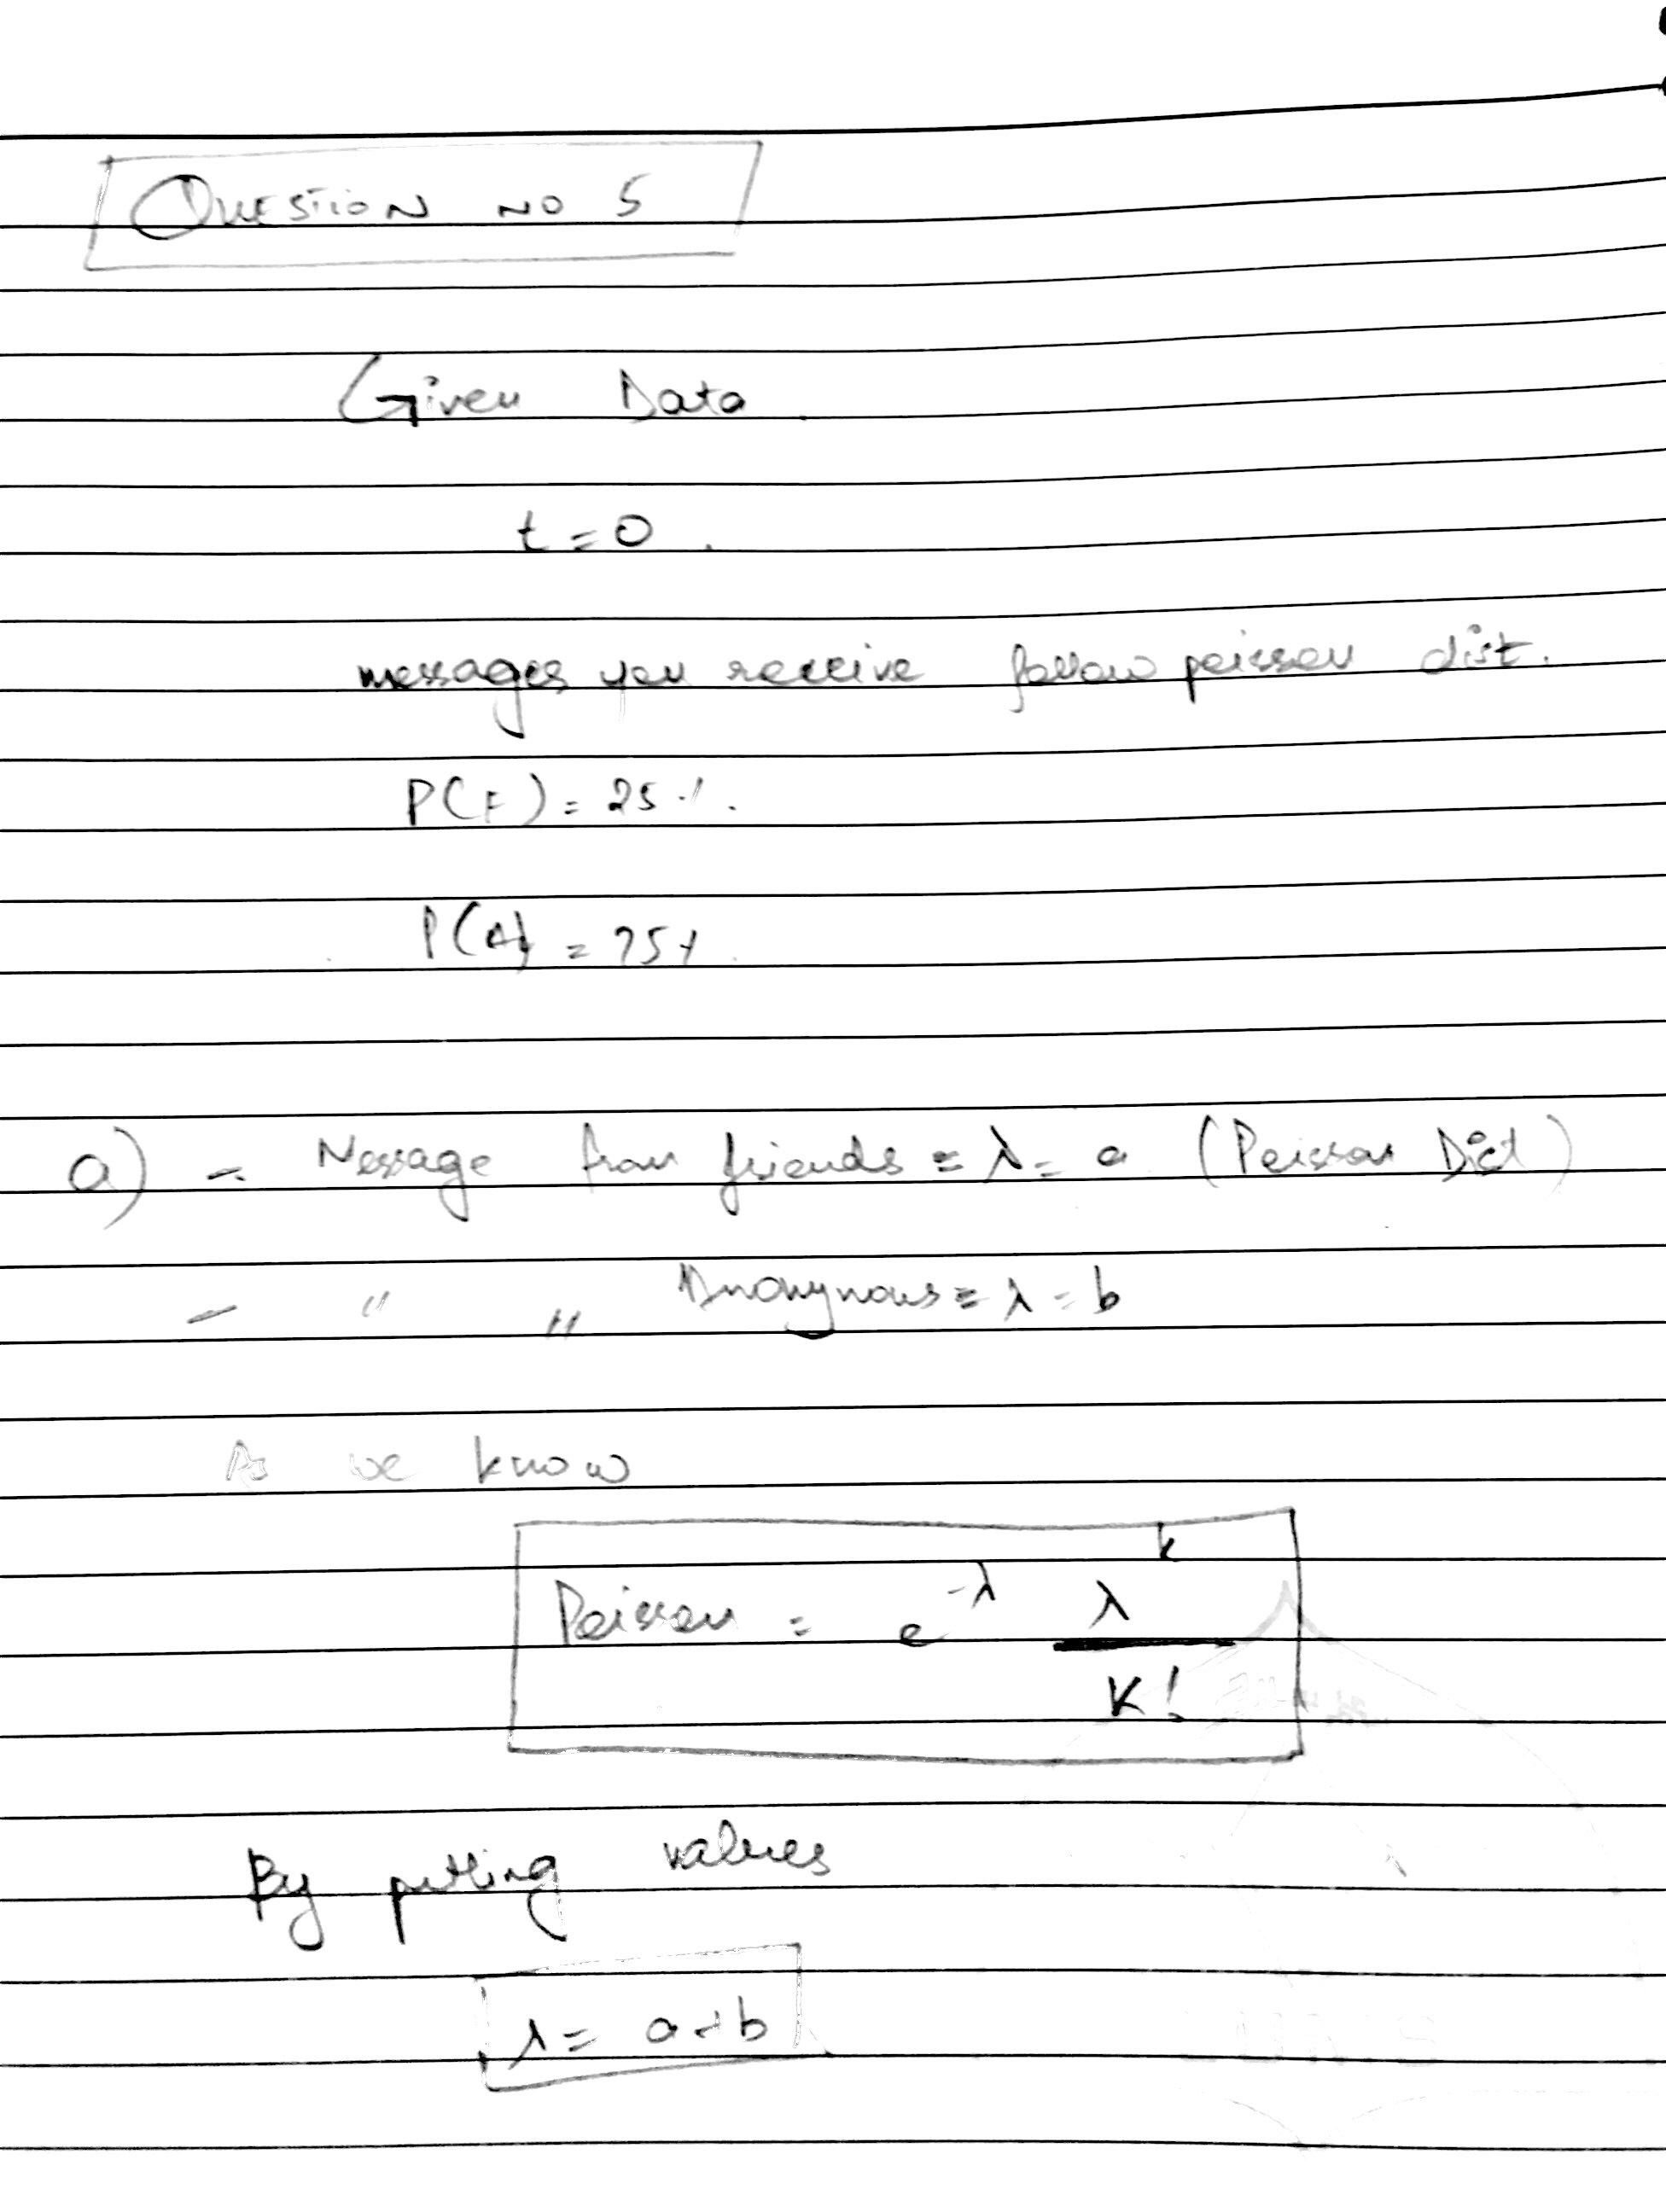 QUESTION NO 5
Given Data
t = 0.
messages you receive follow poisson dist.
P(F) = 25%.
P(A) = 75%.
a) - Message from friends = λ = a (Poisson Dist)
- " " Anonymous = λ = b
As we know
Poisson = e^-λ λ^k / K!
By putting values
λ = a + b